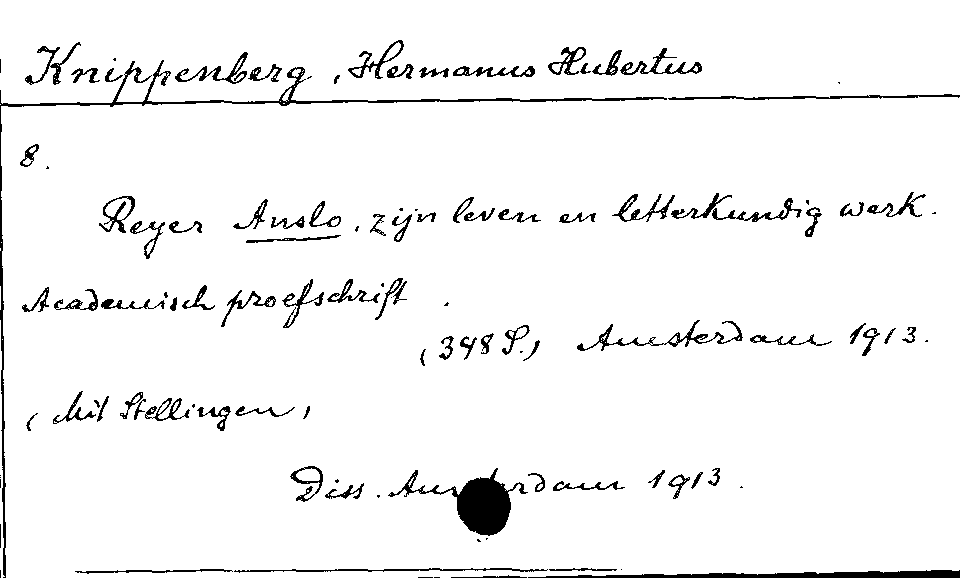 Knippenberg, Hermanus Hubertus
8.
Reyer Anslo, zijn leven en letterkundig werk.
Academisch proefschrift.
(348 S.) Amsterdam 1913.
(Mit Stellingen)
Diss. Amsterdam 1913.